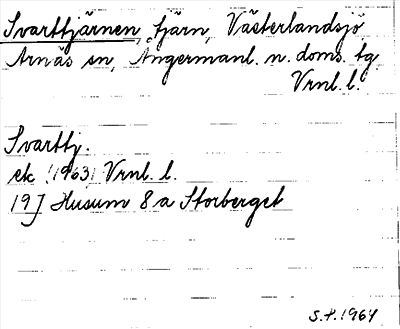 Svarttjärnen, tjärn, Västerlandsjö
Arnäs sn, Ångermanl. n. doms. tg
Vrnl. l.
Svarttj.
ek (1963) Vrnl. l.
19 J Husum 8 a Storberget
S.H. 1964